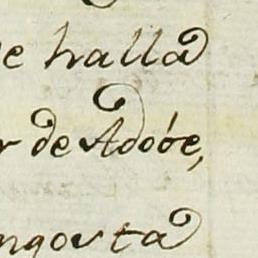 e halla
r de Adove,
ngosta